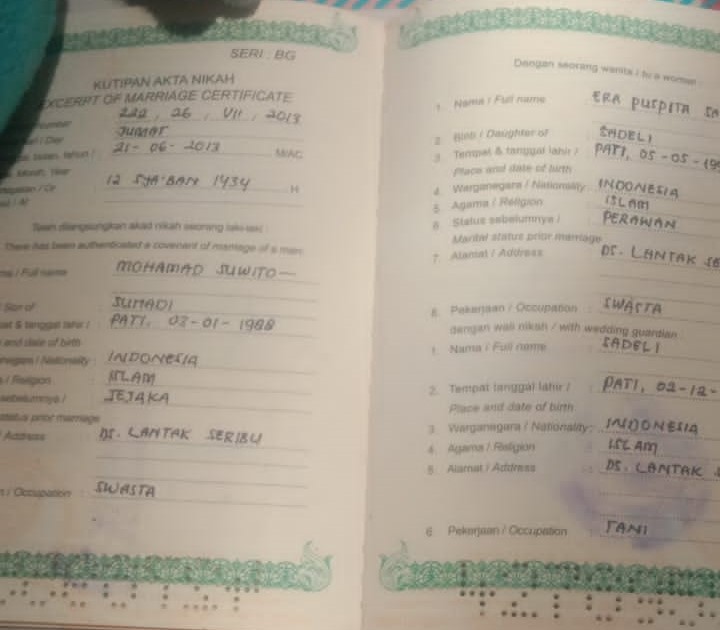 SERI : BG
KUTIPAN AKTA NIKAH
EXCERPT OF MARRIAGE CERTIFICATE
222, 26, VII, 2013
/ Day JUMAT
21-06-2013 M/AC
Month, Year
12 SYA'BAN 1434 H
Telah dilangsungkan akad nikah seorang laki-laki :
There has been authenticated a covenant of marriage of a man:
/ Full name : MOHAMAD SUWITO
Son of : SUMADI
& tanggal lahir / : PATI, 03-01-1988
and date of birth
/ Nationality : INDONESIA
/ Religion : ISLAM
sebelumnya / : JEJAKA
status prior marriage
Address : DS. LANTAK SERIBU
/ Occupation : SWASTA
Dengan seorang wanita / to a woman :
1. Nama / Full name : ERA PUSPITA SA
2. Binti / Daughter of : SADELI
3. Tempat & tanggal lahir / : PATI, 05-05-199
Place and date of birth
4. Warganegara / Nationality : INDONESIA
5. Agama / Religion : ISLAM
6. Status sebelumnya / : PERAWAN
Marital status prior marriage
7. Alamat / Address : DS. LANTAK SE
8. Pekerjaan / Occupation : SWASTA
dengan wali nikah / with wedding guardian
1. Nama / Full name : SADELI
2. Tempat tanggal lahir / : PATI, 02-12-
Place and date of birth
3. Warganegara / Nationality : INDONESIA
4. Agama / Religion : ISLAM
5. Alamat / Address : DS. LANTAK S
6. Pekerjaan / Occupation : TANI